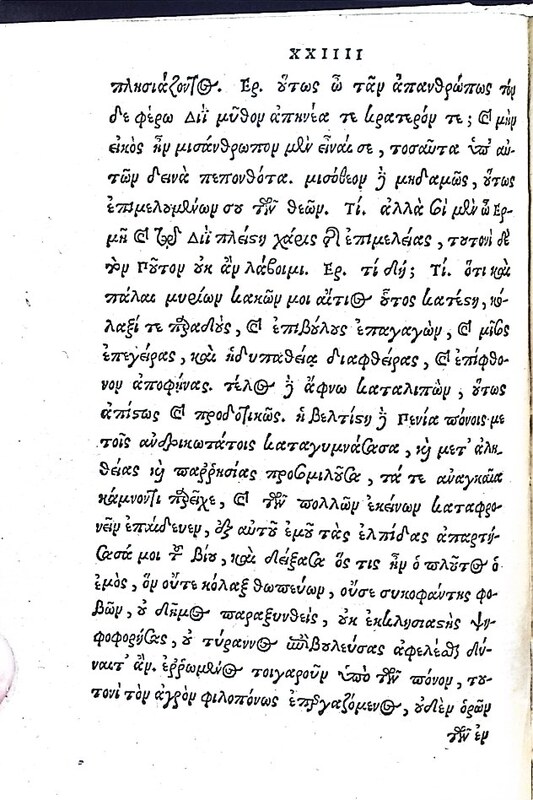 XXIIII
πλησιάζοντος. Ερ. οὕτως ὦ τᾶν ἀπανθρώπως τόν
δε φέρω Διῒ μῦθον ἀπηνέα τε κρατερόν τε; καὶ μὴν
εἰκὸς ἦν μισάνθρωπον μὲν εἶναί σε, τοσαῦτα ὑπ' αὐ-
τῶν δεινὰ πεπονθότα. μισόθεον δὲ μηδαμῶς, οὕτως
ἐπιμελουμένων σου τῶν θεῶν. Τί. ἀλλὰ σοὶ μὲν ὦ Ερ-
μῆ καὶ τῷ Διῒ πλείστη χάρις τῆς ἐπιμελείας, τουτονὶ δὲ
τὸν Πλοῦτον οὐκ ἂν λάβοιμι. Ερ. τί δή; Τί. ὅτι καὶ
πάλαι μυρίων κακῶν μοι αἴτιος οὗτος κατέστη, κό-
λαξί τε παραδοὺς, καὶ ἐπιβούλους ἐπαγαγὼν, καὶ μῖσος
ἐπεγείρας, καὶ ἡδυπαθείᾳ διαφθείρας, καὶ ἐπίφθο-
νον ἀποφήνας. τέλος δὲ ἄφνω καταλιπὼν, οὕτως
ἀπίστως καὶ προδοτικῶς. ἡ βελτίστη δὲ Πενία πόνοις με
τοῖς ἀνδρικωτάτοις καταγυμνάσασα, καὶ μετ' ἀλη-
θείας καὶ παρρησίας προσομιλοῦσα, τά τε ἀναγκαῖα
κάμνοντι παρεῖχε, καὶ τῶν πολλῶν ἐκείνων καταφρο-
νεῖν ἐπαίδευεν, ἐξ αὐτοῦ ἐμοῦ τὰς ἐλπίδας ἀπαρτή-
σασά μοι τοῦ βίου, καὶ δείξασα ὅς τις ἦν ὁ πλοῦτος ὁ
ἐμὸς, ὃν οὔτε κόλαξ θωπεύων, οὔτε συκοφάντης φο-
βῶν, οὐ δῆμος παροξυνθεὶς, οὐκ ἐκκλησιαστὴς ψη-
φοφορήσας, οὐ τύραννος ἐπιβουλεύσας ἀφελέσθαι δύ-
ναιτ' ἄν. ἐρρωμένος τοιγαροῦν ὑπὸ τῶν πόνων, του-
τονὶ τὸν ἀγρὸν φιλοπόνως ἐπεργαζόμενος, οὐδὲν ὁρῶν
τῶν ἐν